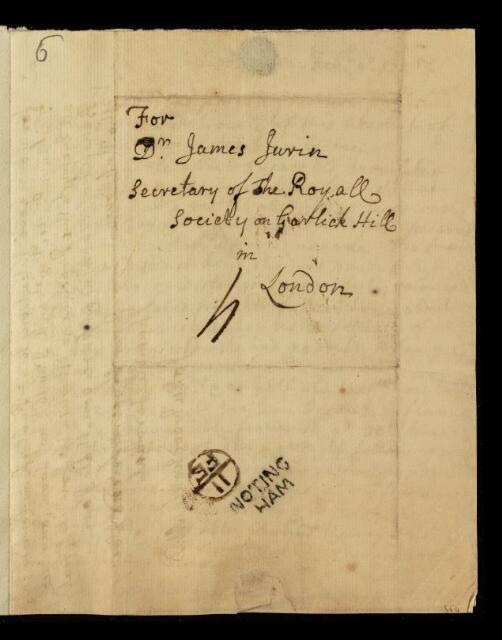 6
For
Dr. James Jurin
Secretary of the Royall
Society on Garlick Hill
in
London
4
11
NOTING
HAM